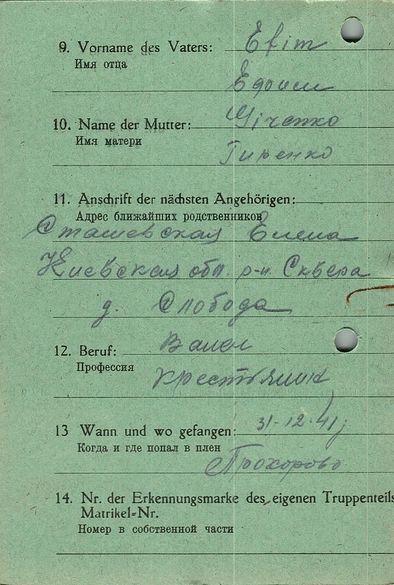 9. Vorname des Vaters: Efim
Имя отца
10. Name der Mutter:
Имя матери
Гиренко
11. Anschrift der nächsten Angehörigen:
Адрес ближайших родственников
Сташевская Елена
Киевская обл. р-н. Сквера
д. Слобода
12. Beruf:
Профессия
13 Wann und wo gefangen: 31-12-41,
Когда и где попал в плен
Прохорово
14. Nr. der Erkennungsmarke des eigenen Truppenteils
Matrikel-Nr.
Номер в собственной части